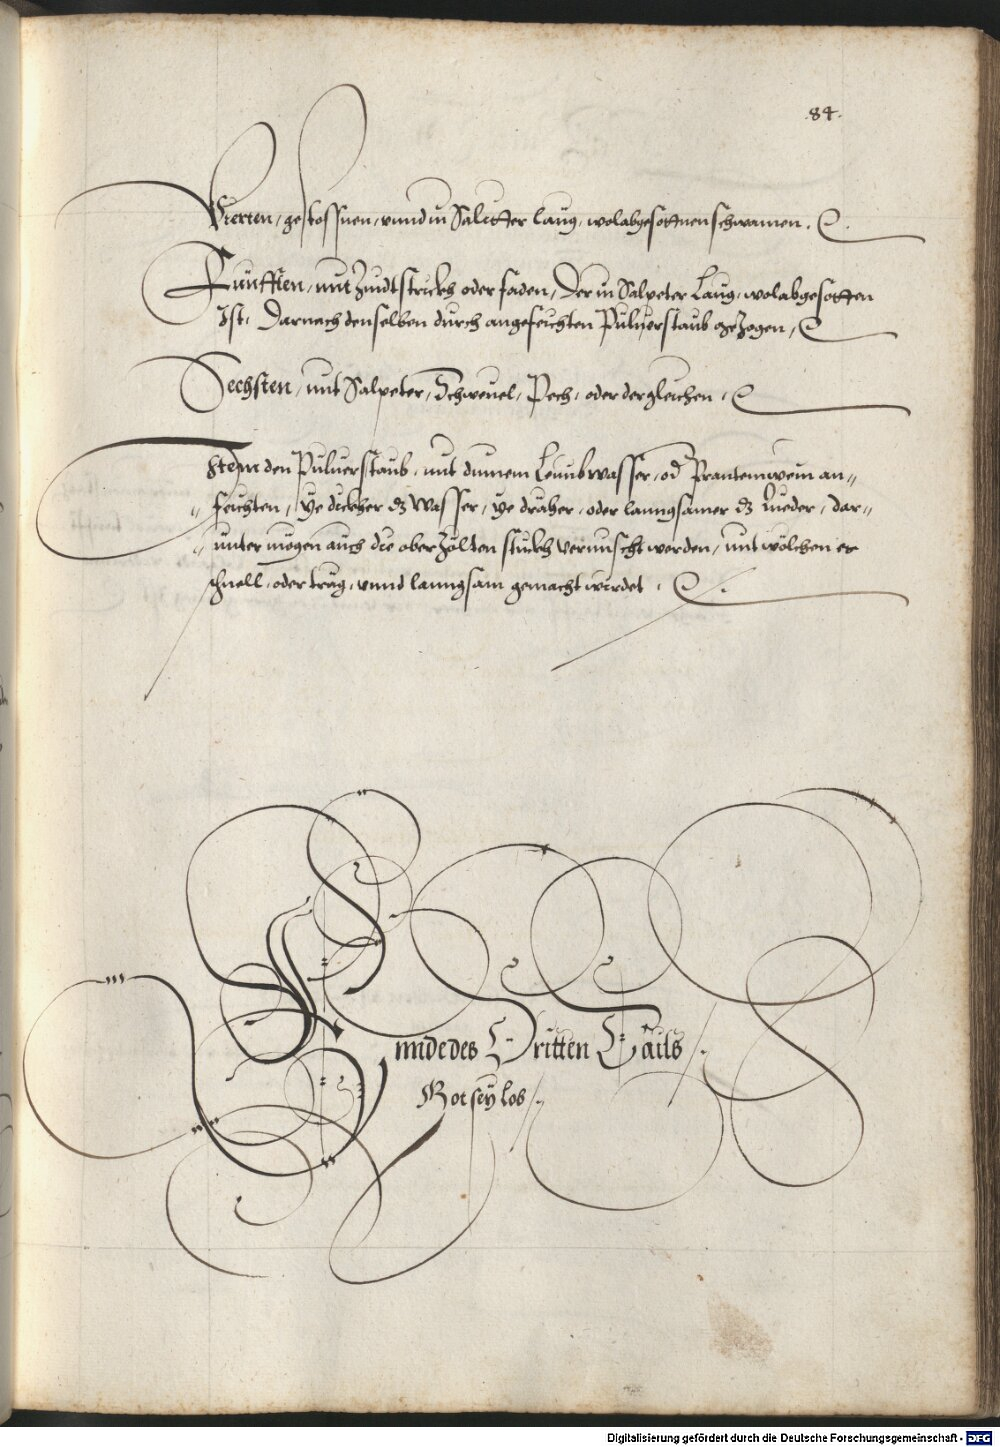 .84.
Vierten, gestossnen, vnnd in Saliter laug, wolabgesottnen schwamen.
Fünfften, mit Zundtstrickh oder faden, Der in Salpeter Laug, wolabgesotten
Ist, Darnach denselben durch angefeichten Puluerstaub gezogen,
Sechsten, mit Salpeter, Schweuel, Pech, oder dergleichen,
Item den Puluerstaub, mit dinnem Leimbwasser, od Prantemwein an〃
〃 feichten, Ye dickher dz Wasser, ye dräher, oder lanngsamer dz Lueder, dar〃
〃 unter mögen auch die oberzölten stuckh vermischt werden, mit wölchen er
schnell, oder träg, vnnd lanngsam gemacht wirdet,
Ennde des Dritten Tails
Got sey lob
Digitalisierung gefördert durch die Deutsche Forschungsgemeinschaft - DFG